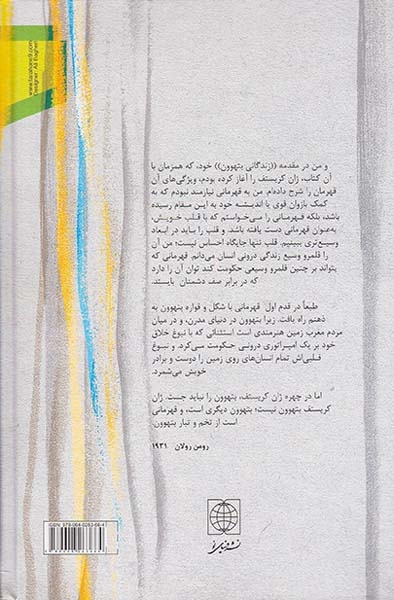 www.farahane9.com
Designer: Ali Bagheri
و من در مقدمه ((زندگانی بتهوون)) خود، که همزمان با
آن کتاب، ژان کریستف را آغاز کرده بودم، ویژگی‌های آن
قهرمان را شرح داده‌ام. من به قهرمانی نیازمند نبودم که به
کمک بازوان قوی یا اندیشه خود به این مقام رسیده
باشد، بلکه قهرمانی را می‌خواستم که با قلب خویش،
به‌عنوان قهرمانی دست یافته باشد. و قلب را باید در ابعاد
وسیع‌تری ببینیم. قلب تنها جایگاه احساس نیست؛ من آن
را قلمرو وسیع زندگی درونی انسان می‌دانم. قهرمانی که
بتواند بر چنین قلمرو وسیعی حکومت کند توان آن را دارد
که در برابر صف دشمنان بایستد.
طبعاً در قدم اول قهرمانی با شکل و قواره بتهوون به
ذهنم راه یافت. زیرا بتهوون در دنیای مدرن، و در میان
مردم مغرب زمین هنرمندی است استثنائی که با نبوغ خلاق
خود بر یک امپراتوری درونی حکومت می‌کرد و نبوغ
قلبی‌اش تمام انسان‌های روی زمین را دوست و برادر
خویش می‌شمرد.
اما در چهره ژان کریستف، بتهوون را نباید جست. ژان
کریستف بتهوون نیست؛ بتهوون دیگری است، و قهرمانی
است از تخم و تبار بتهوون.
رومن رولان ۱۹۳۱
ISBN: 978-964-0263-66-4
نشر دنیای نو